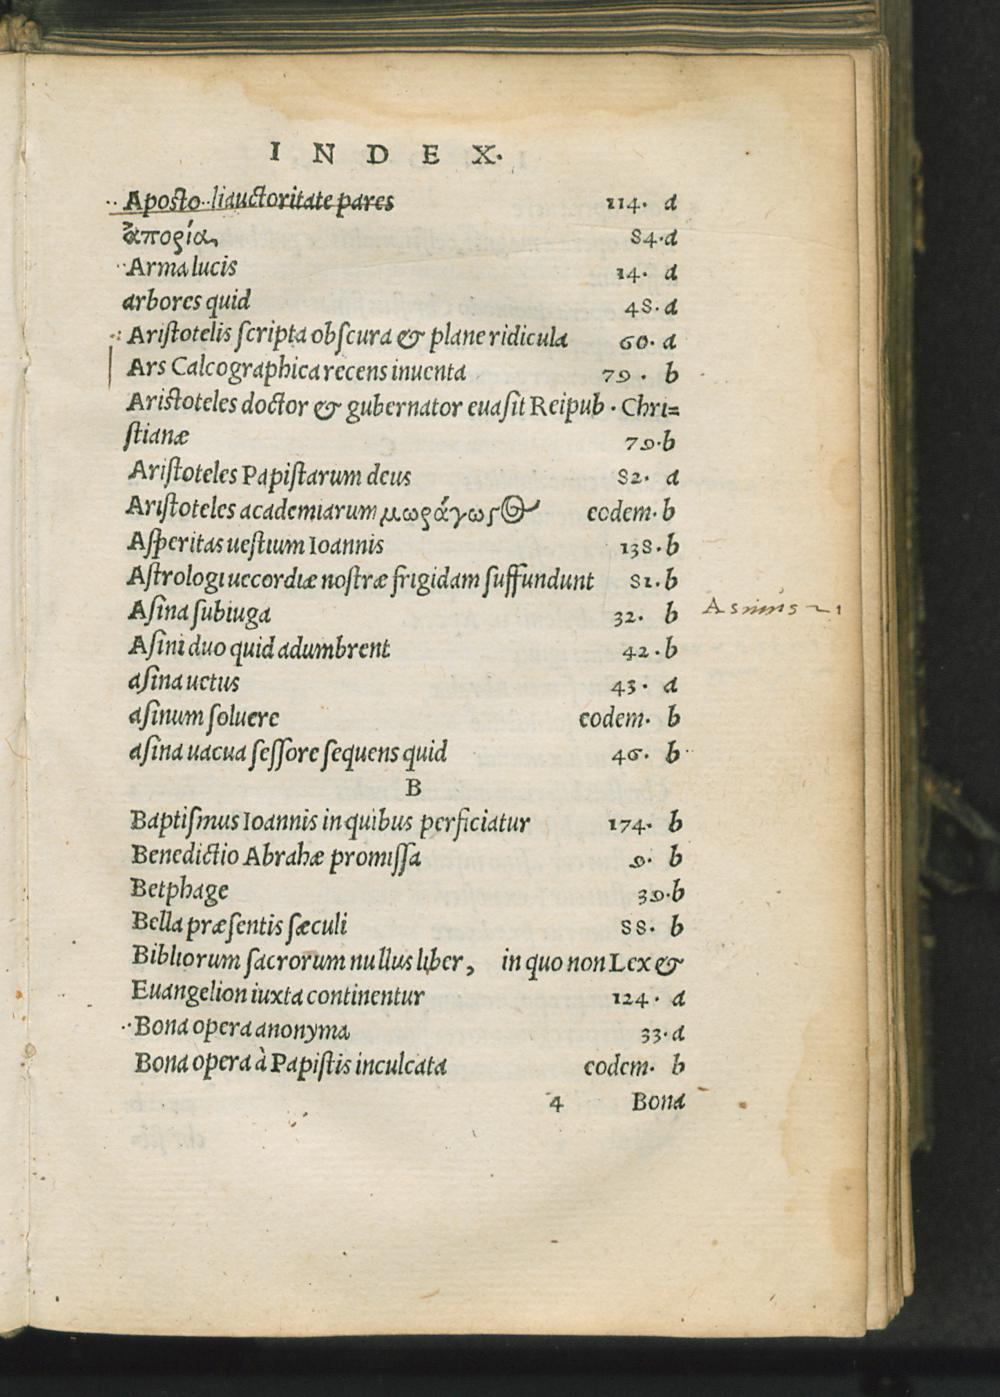 INDEX.
Apostoli auctoritate pares 114. a
ἀπορία, 84. a
Arma lucis 14. a
arbores quid 48. a
Aristotelis scripta obscura & plane ridicula 60. a
Ars Calcographica recens inuenta 79. b
Aristoteles doctor & gubernator euasit Reipub. Chri=
stianæ 79. b
Aristoteles Papistarum deus 82. a
Aristoteles academiarum μωράγωγος eodem. b
Asperitas uestium Ioannis 138. b
Astrologi uecordiæ nostræ frigidam suffundunt 81. b
Asina subiuga 32. b
Asinus 21
Asini duo quid adumbrent 42. b
asina uctus 43. a
asinum soluere eodem. b
asina uacua sessore sequens quid 46. b
B
Baptismus Ioannis in quibus perficiatur 174. b
Benedictio Abrahæ promissa 9. b
Betphage 39. b
Bella præsentis sæculi 88. b
Bibliorum sacrorum nullus liber, in quo non Lex &
Euangelion iuxta continentur 124. a
Bona opera anonyma 33. a
Bona opera à Papistis inculcata eodem. b
4 Bona